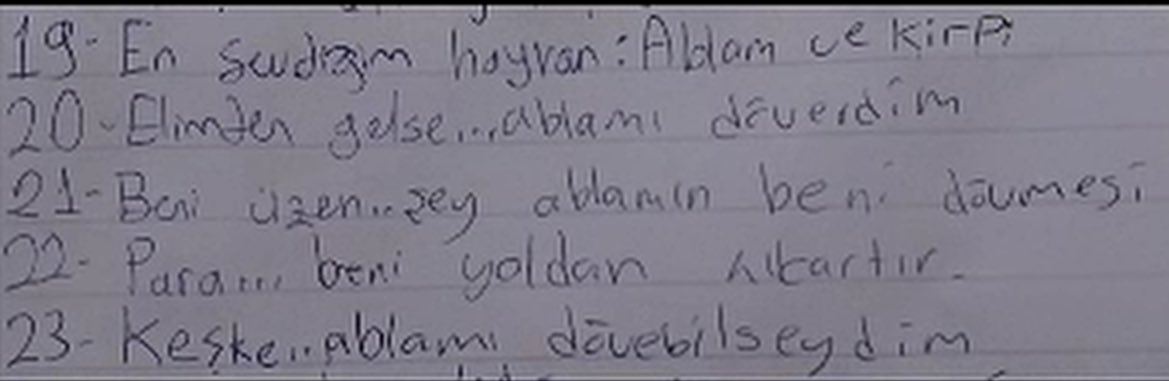 19- En sevdiğim hayvan: Ablam ve kirpi
20- Elimden gelse... ablamı döverdim
21- Beni üzen.. şey ablamın beni dövmesi
22- Para... beni yoldan çıkartır.
23- Keşke.. ablamı dövebilseydim